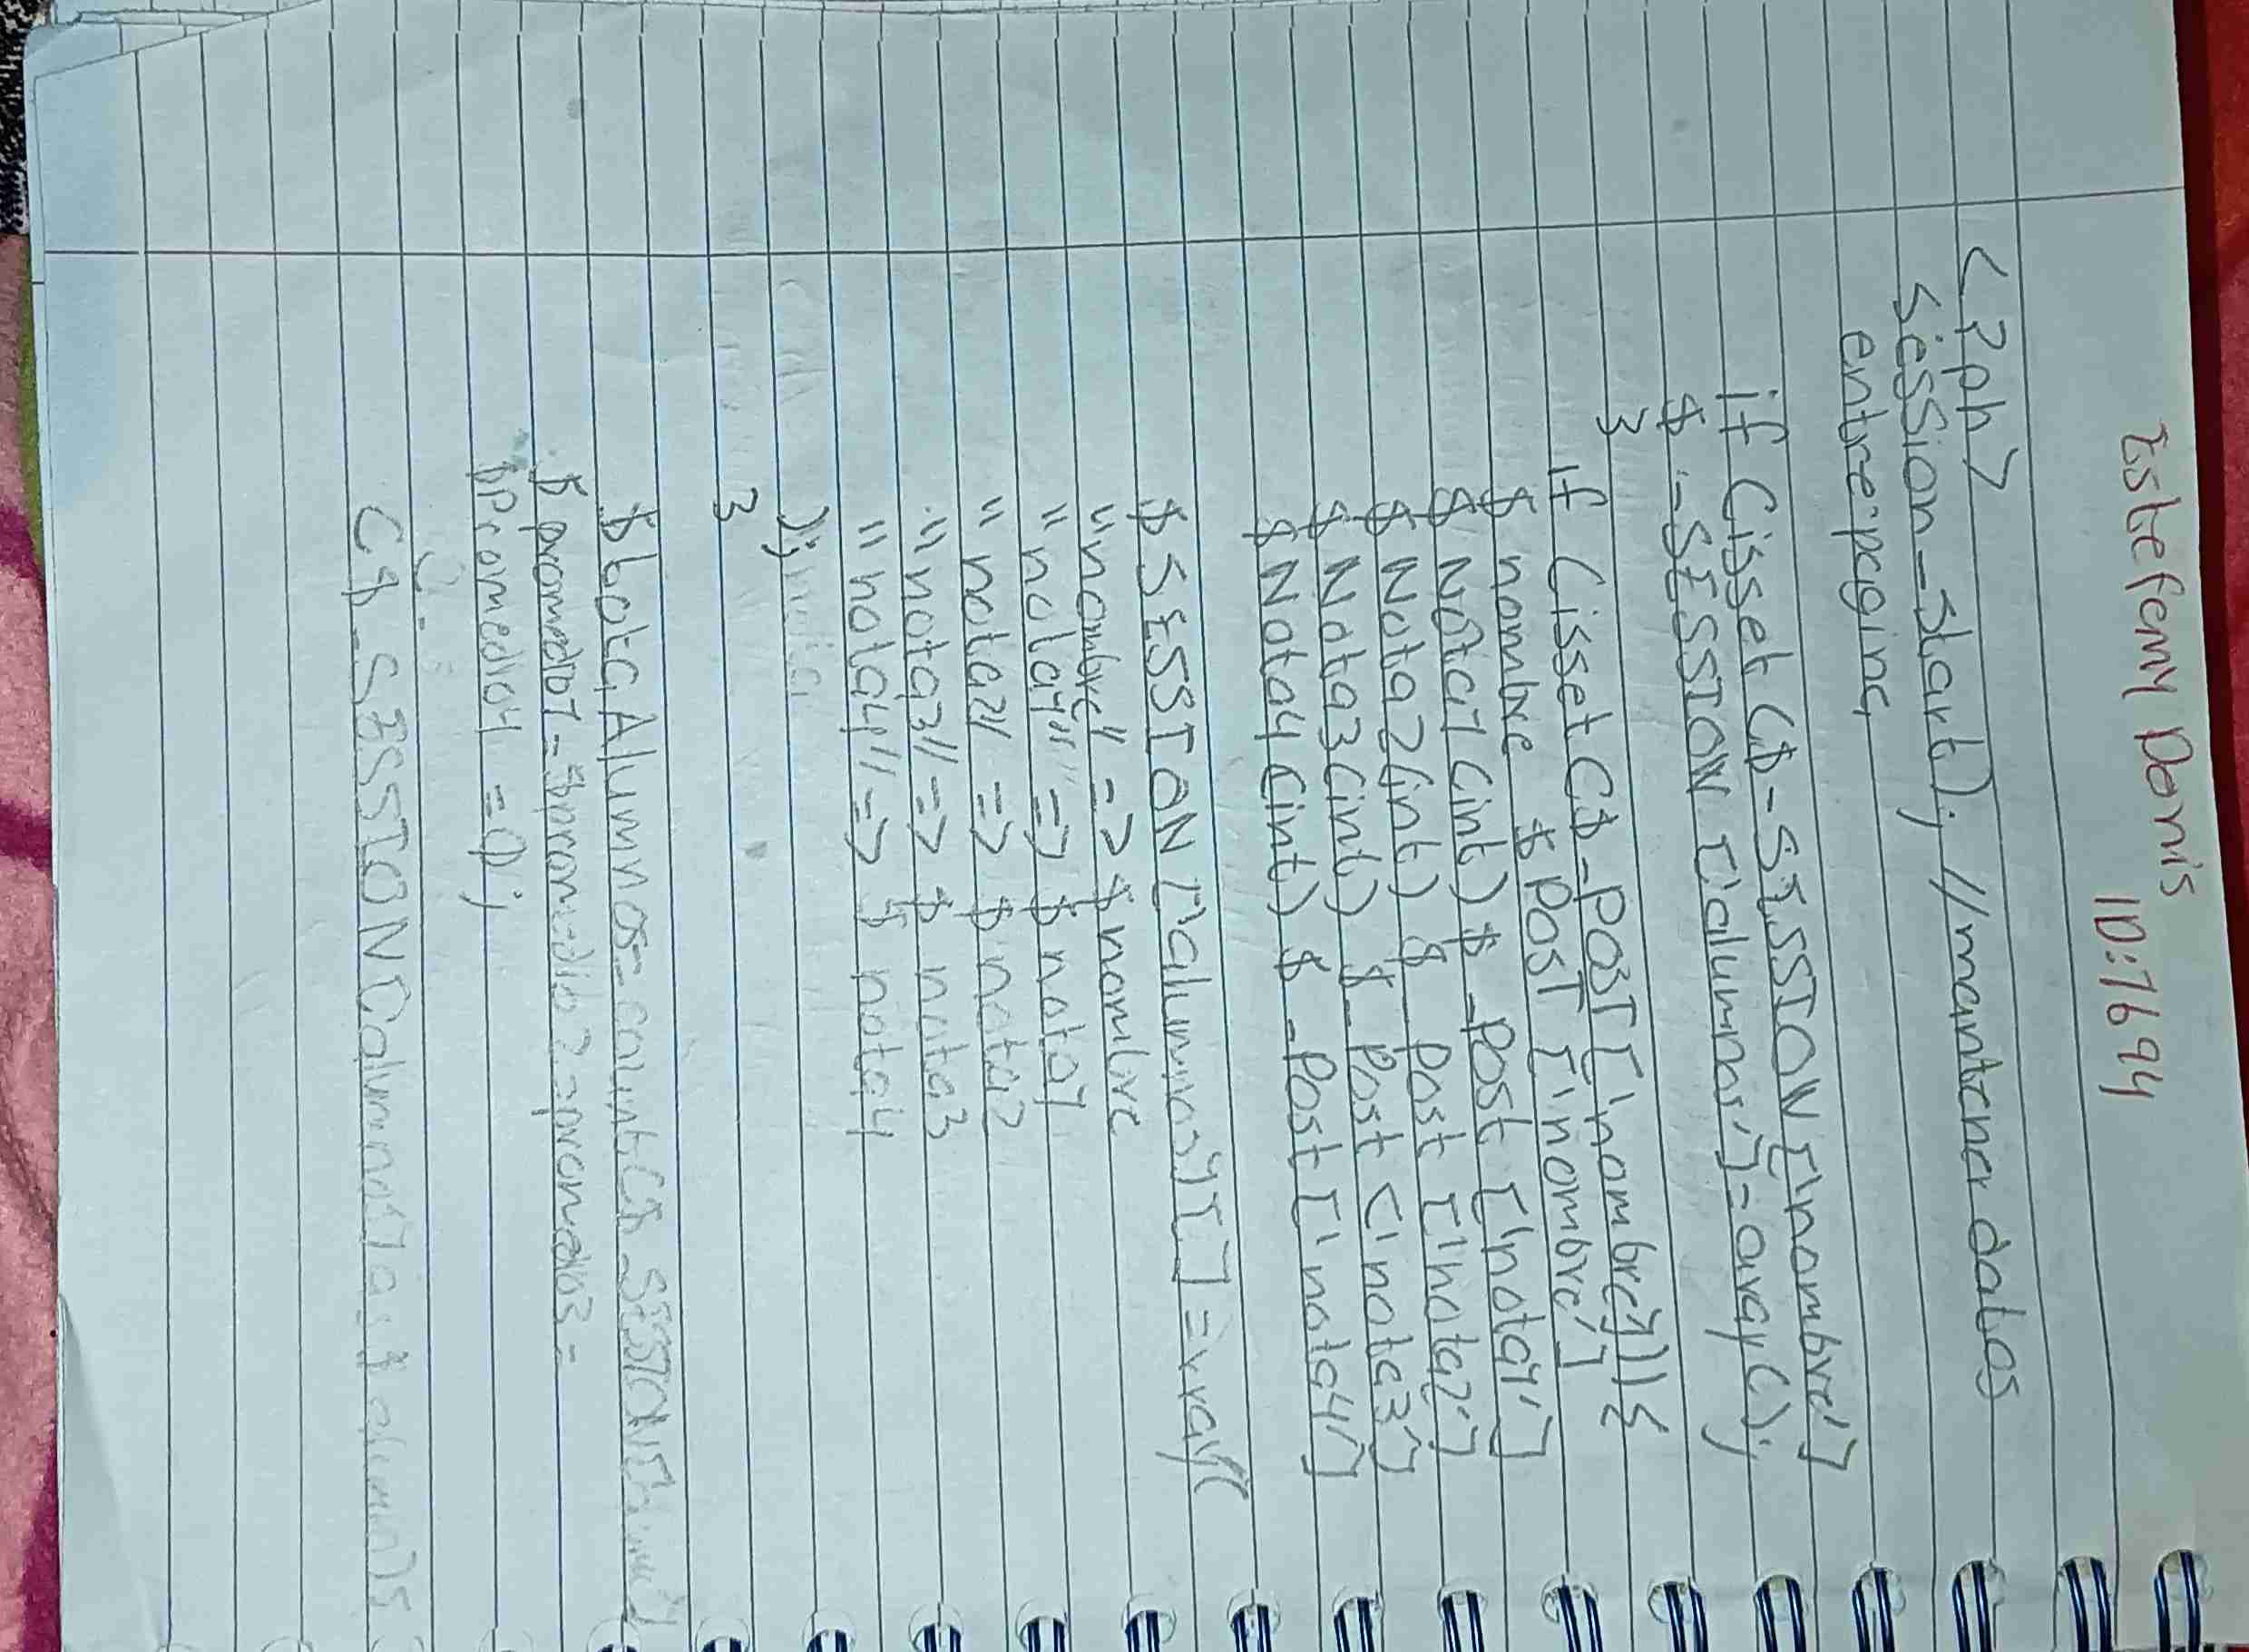 Estefemy Domis
ID:7694
<?ph>
session_start); //mantener datos
entre:pagina,
if (isset($-SESSION['nombre']
$_SESSION['alumnos']=array();
}
if (isset($_POST['nombre'])){
$ nombre $ POST ['nombre']
$ Nota1(int)$_Post['nota1']
$ Nota2(int) $_Post['nota2']
$ Nota3(int) $_Post['nota3']
$ Nota4(int) $_Post['nota4']
$ SESSION['alumnos'][]=array(
"nombre"=>$nombre
"nota1"=>$nota1
"nota2"=>$nota2
"nota3"=>$ nota3
"nota4"=>$ nota4
));
}
$botaAlumnos=count($_SESSION[
$promedio1=$promedio2=promedio3=
$Promedio4 =0;
($_SESSION[alumnos]as $alumno)5